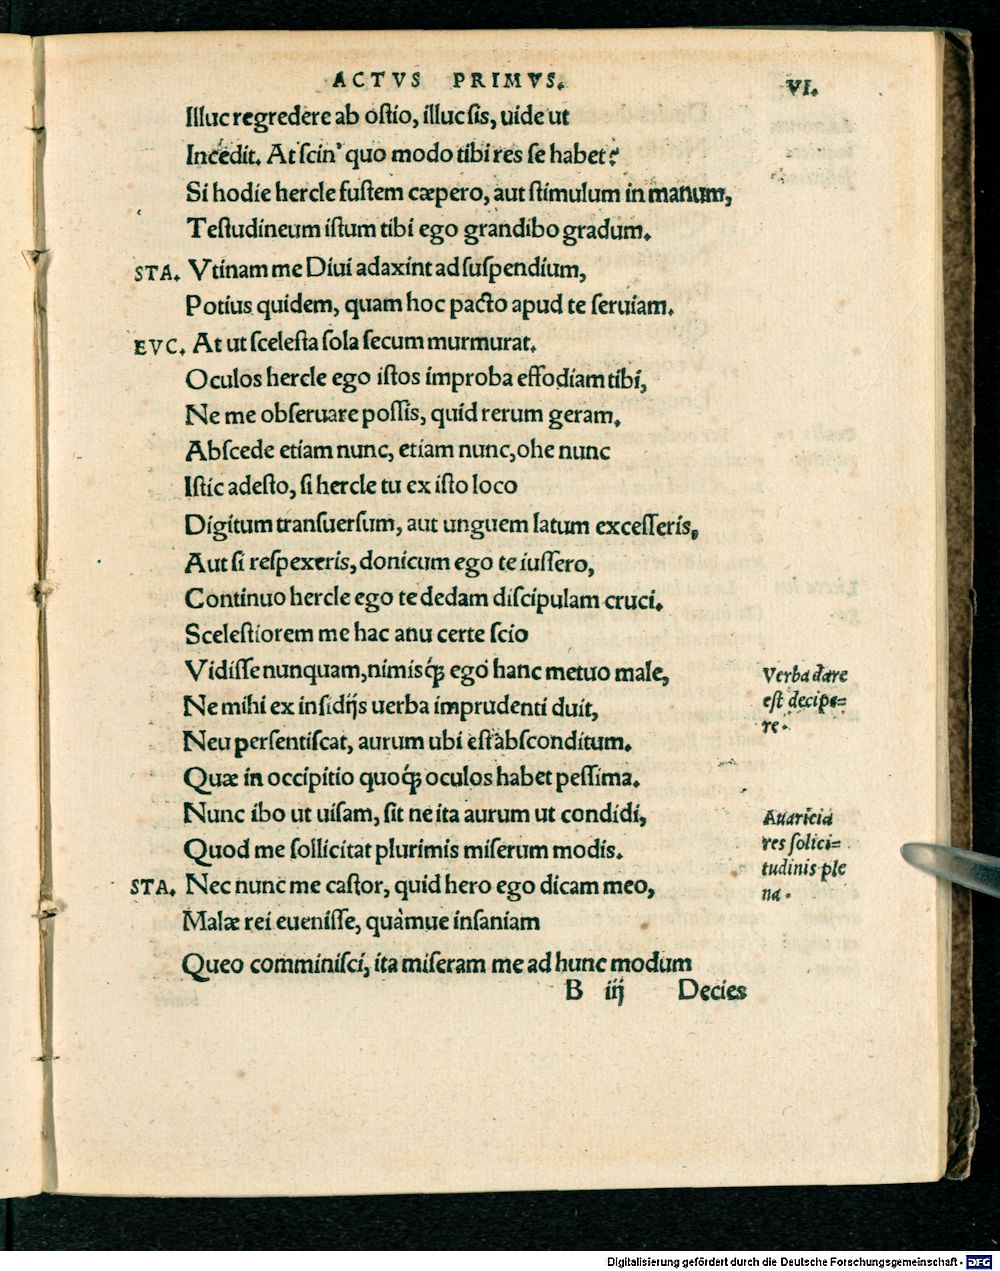 ACTVS PRIMVS.
VI.
Illuc regredere ab oſtio, illuc ſis, uide ut
Incedit. At ſcin' quo modo tibi res ſe habet?
Si hodie hercle fuſtem cæpero, aut ſtimulum in manum,
Teſtudineum iſtum tibi ego grandibo gradum.
STA. Vtinam me Diui adaxint ad ſuſpendium,
Potius quidem, quam hoc pacto apud te ſeruiam.
EVC. At ut ſceleſta ſola ſecum murmurat.
Oculos hercle ego iſtos improba effodiam tibi,
Ne me obſeruare poſſis, quid rerum geram,
Abſcede etiam nunc, etiam nunc, ohe nunc
Iſtic adeſto, ſi hercle tu ex iſto loco
Digitum tranſuerſum, aut unguem latum exceſſeris,
Aut ſi reſpexeris, donicum ego te iuſſero,
Continuo hercle ego te dedam diſcipulam cruci.
Sceleſtiorem me hac anu certe ſcio
Vidiſſe nunquam, nimisq́ꝫ ego hanc metuo male,
Ne mihi ex inſidijs uerba imprudenti duit,
Neu perſentiſcat, aurum ubi eſt abſconditum.
Quæ in occipitio quoq́ꝫ oculos habet peſſima.
Nunc ibo ut uiſam, ſit ne ita aurum ut condidi,
Quod me ſollicitat plurimis miſerum modis.
STA. Nec nunc me caſtor, quid hero ego dicam meo,
Malæ rei eueniſſe, quàmue inſaniam
Queo comminiſci, ita miſeram me ad hunc modum
B iij Decies
Verba dare
eſt decipe=
re.
Auaricia
res ſolici=
tudinis ple
na.
Digitalisierung gefördert durch die Deutsche Forschungsgemeinschaft - DFG